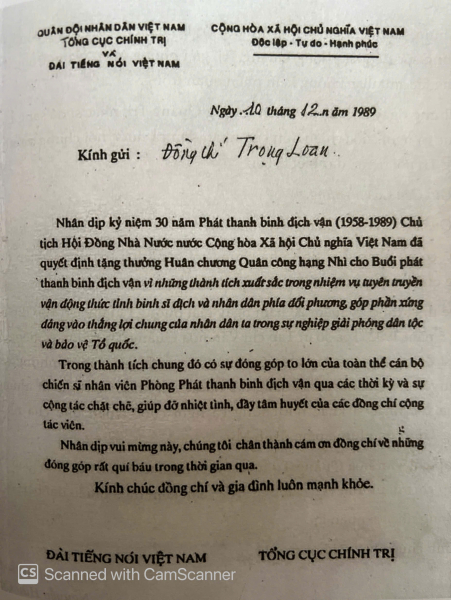 QUÂN ĐỘI NHÂN DÂN VIỆT NAM
TỔNG CỤC CHÍNH TRỊ
VÀ
ĐÀI TIẾNG NÓI VIỆT NAM
CỘNG HÒA XÃ HỘI CHỦ NGHĨA VIỆT NAM
Độc lập - Tự do - Hạnh phúc
Ngày 20 tháng 12 năm 1989
Kính gửi : Đồng chí Trọng Loan
Nhân dịp kỷ niệm 30 năm Phát thanh binh địch vận (1958-1989) Chủ
tịch Hội Đồng Nhà Nước nước Cộng hòa Xã hội Chủ nghĩa Việt Nam đã
quyết định tặng thưởng Huân chương Quân công hạng Nhì cho Buổi phát
thanh binh địch vận vì những thành tích xuất sắc trong nhiệm vụ tuyên truyền
vận động thức tỉnh binh sĩ địch và nhân dân phía đối phương, góp phần xứng
đáng vào thắng lợi chung của nhân dân ta trong sự nghiệp giải phóng dân tộc
và bảo vệ Tổ quốc.
Trong thành tích chung đó có sự đóng góp to lớn của toàn thể cán bộ
chiến sĩ nhân viên Phòng Phát thanh binh địch vận qua các thời kỳ và sự
cộng tác chặt chẽ, giúp đỡ nhiệt tình, đầy tâm huyết của các đồng chí cộng
tác viên.
Nhân dịp vui mừng này, chúng tôi chân thành cám ơn đồng chí về những
đóng góp rất quí báu trong thời gian qua.
Kính chúc đồng chí và gia đình luôn mạnh khỏe.
ĐÀI TIẾNG NÓI VIỆT NAM
TỔNG CỤC CHÍNH TRỊ
CS Scanned with CamScanner